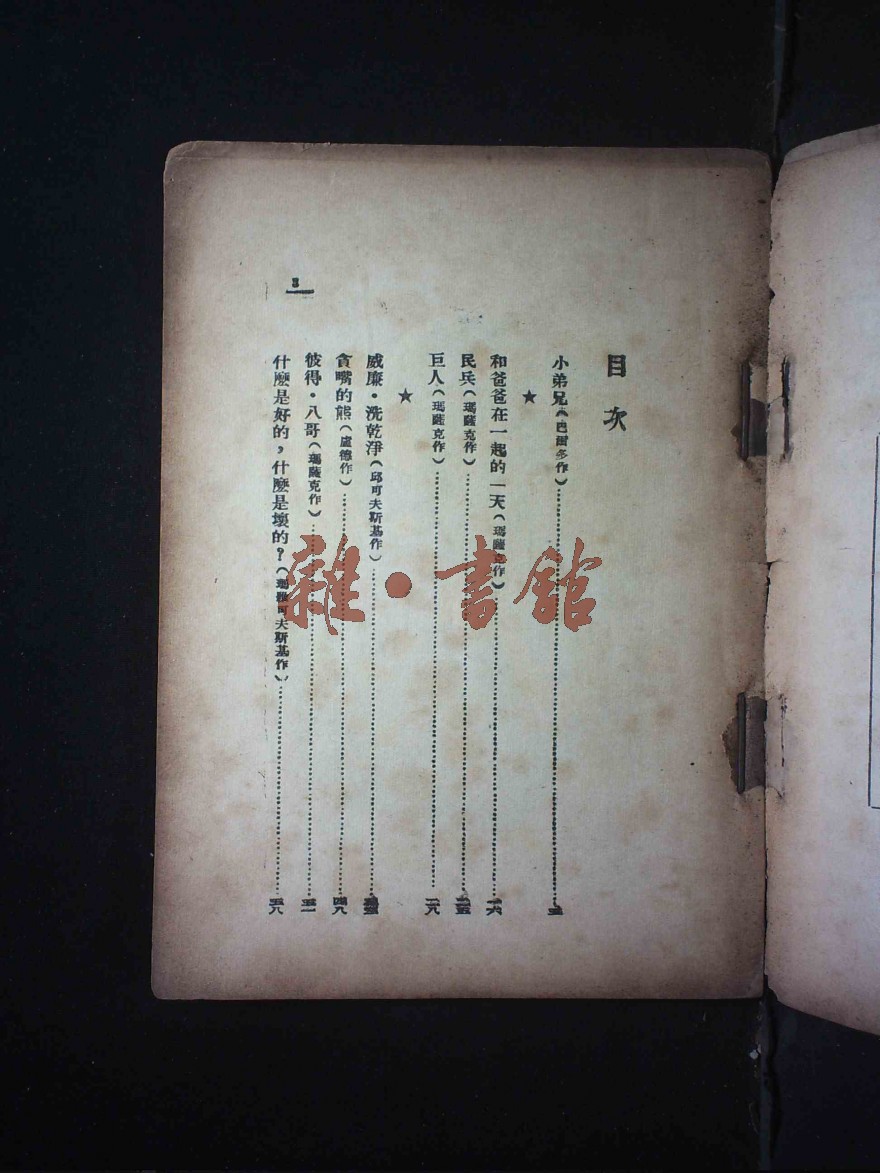 目次
小弟兄(巴爾多作)
★
和爸爸在一起的一天(瑪薩克作)……一六
民兵(瑪薩克作)
巨人(瑪薩克作)……二九
★
威廉·洗乾淨(邱可夫斯基作)
貪嘴的熊(盧德作)……四九
彼得·八哥(瑪薩克作)……五一
什麼是好的,什麼是壞的?(瑪雅可夫斯基作)……五八
3
雜·書館